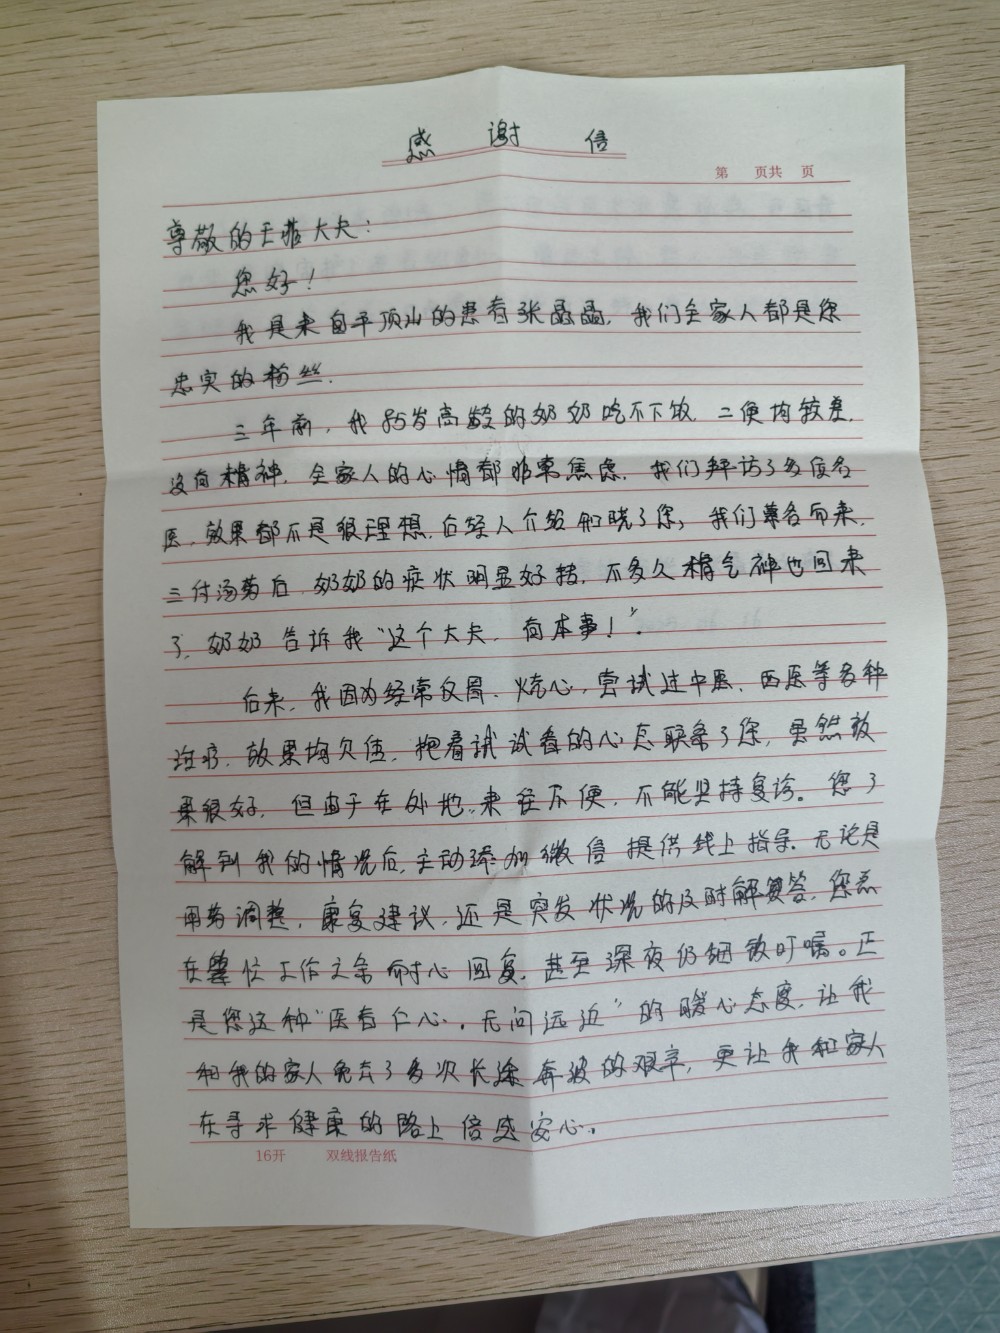 感 谢 信
第 页共 页
尊敬的王菲大夫：
您好！
我是来自平顶山的患者张晶晶，我们全家人都是您
忠实的粉丝.
三年前，我85岁高龄的奶奶吃不下饭 二便均较差.
没有精神，全家人的心情都非常焦虑，我们拜访了多位名
医，效果都不是很理想，后经人介绍知晓了您，我们慕名而来.
三付汤药后，奶奶的症状明显好转，不多久精气神也回来
了，奶奶告诉我“这个大夫，有本事！”.
后来，我因为经常反胃、烧心，尝试过中医、西医等多种
治疗，效果均欠佳，抱着试试看的心态联系了您，虽然效
果很好，但由于在外地，来往不便，不能坚持复诊。您了
解到我的情况后，主动添加微信提供线上指导，无论是
用药调整，康复建议，还是突发状况的及时解答，您总
在繁忙工作之余耐心回复，甚至深夜仍细致叮嘱。正
是您这种“医者仁心，无问远近”的暖心态度，让我
和我的家人免去了多次长途奔波的艰辛，更让我和家人
在寻求健康的路上倍感安心。
16开 双线报告纸